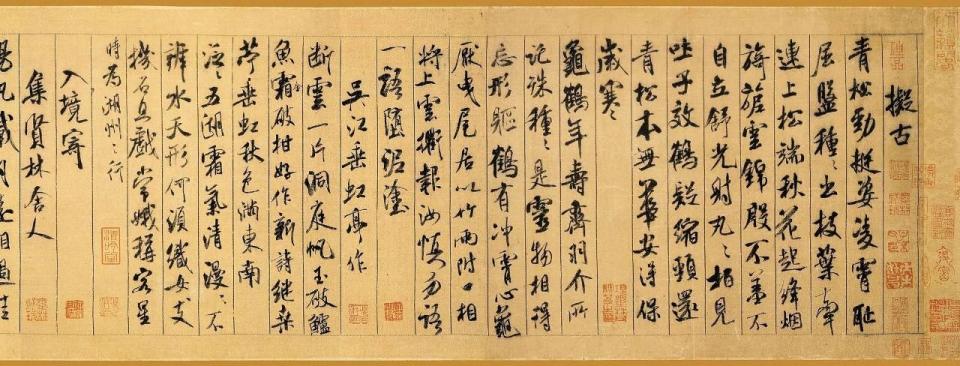 擬古
青松勁挺姿凌霄恥
屈盤種〻出枝葉牽
連上松端秋花起絳烟
旖旎雲錦殷不羞不
自立舒光射丸〻柏見
吐子效鶴疑縮頸還
青松本無華安得保
歲寒〻
龜鶴年壽齊羽介所
託殊種〻是靈物相得
忘形軀鶴有冲霄心龜
厭曳尾居以竹兩附口相
將上雲衢報汝慎勿語
一語墮泥塗
吳江垂虹亭作
断雲一片洞庭帆玉破鱸
魚霜破柑好作新詩繼桑
苧垂虹秋色滿東南
泛〻五湖霜氣清漫〻不
辨水天形何須織女支
機石且戲常娥稱客星
時為湖州之行
入境寄
集賢林舍人
揚帆載月遠相過佳